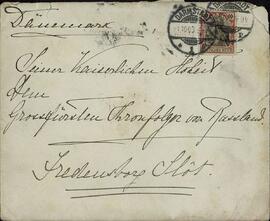 Dänemark
DARMSTADT
Seiner Kaiserlichen Hoheit
Dem
Grossfürsten Thronfolger von Russland
Fredensborg Slot.